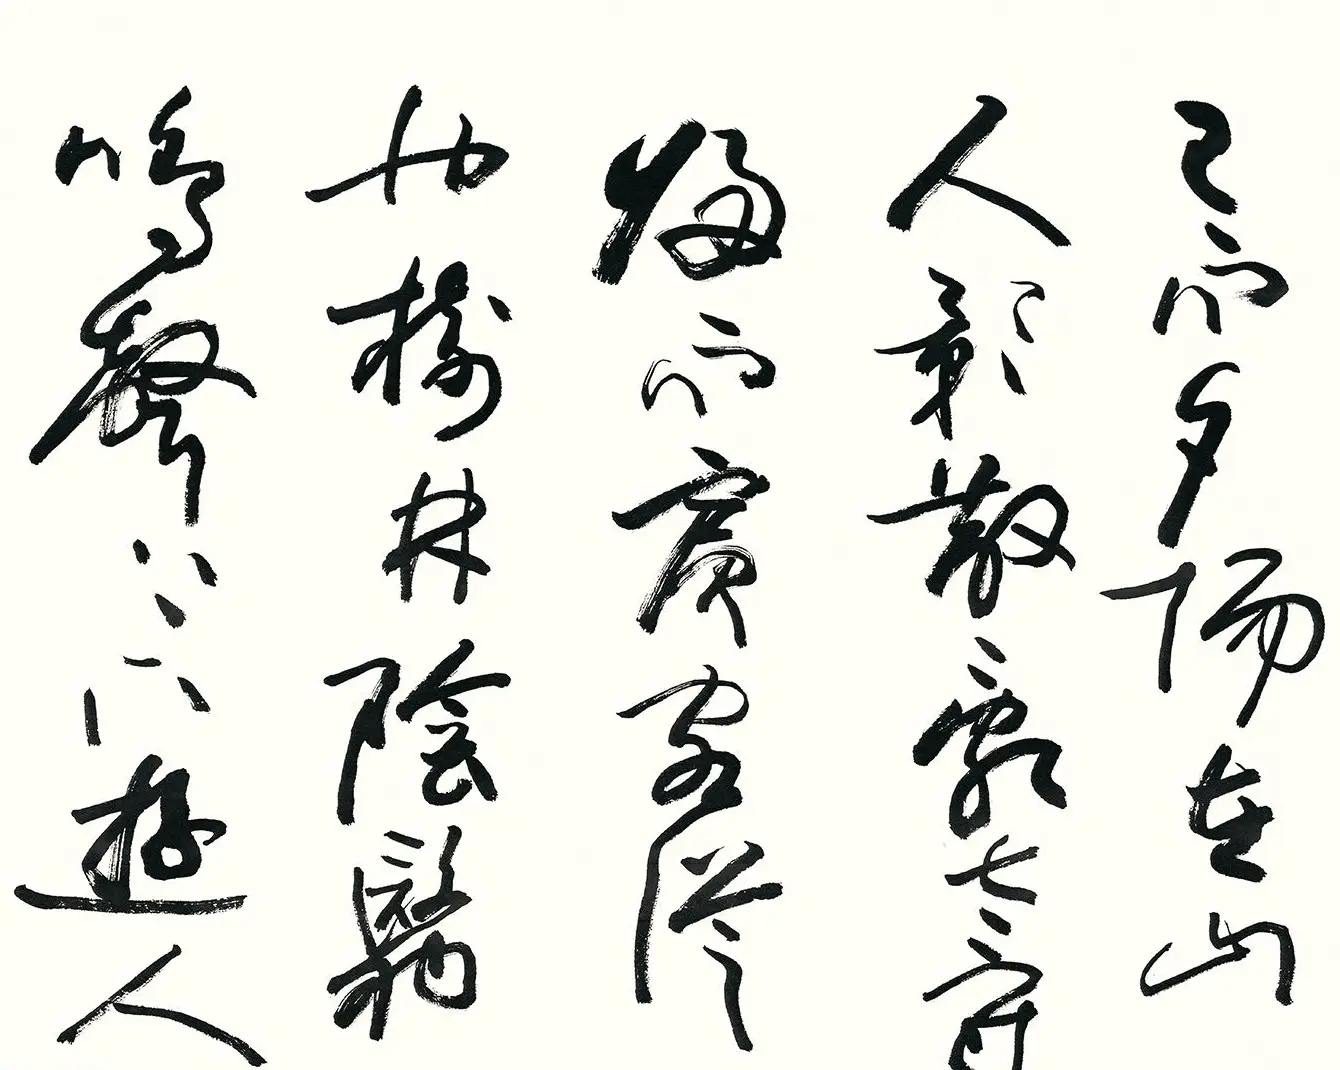 已而夕陽在山
人影散亂太守
歸而賓客從
也樹林陰翳
鳴聲上下遊人